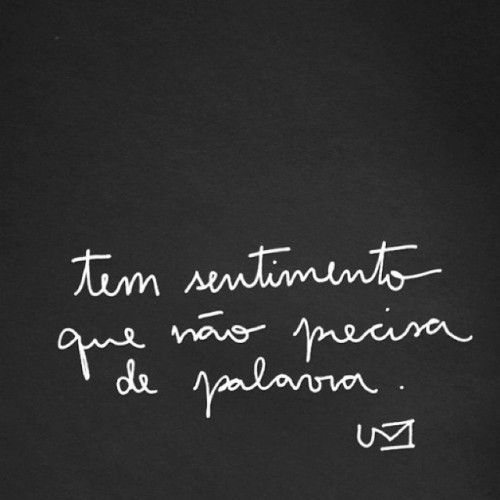 tem sentimento
que não precisa
de palavra.